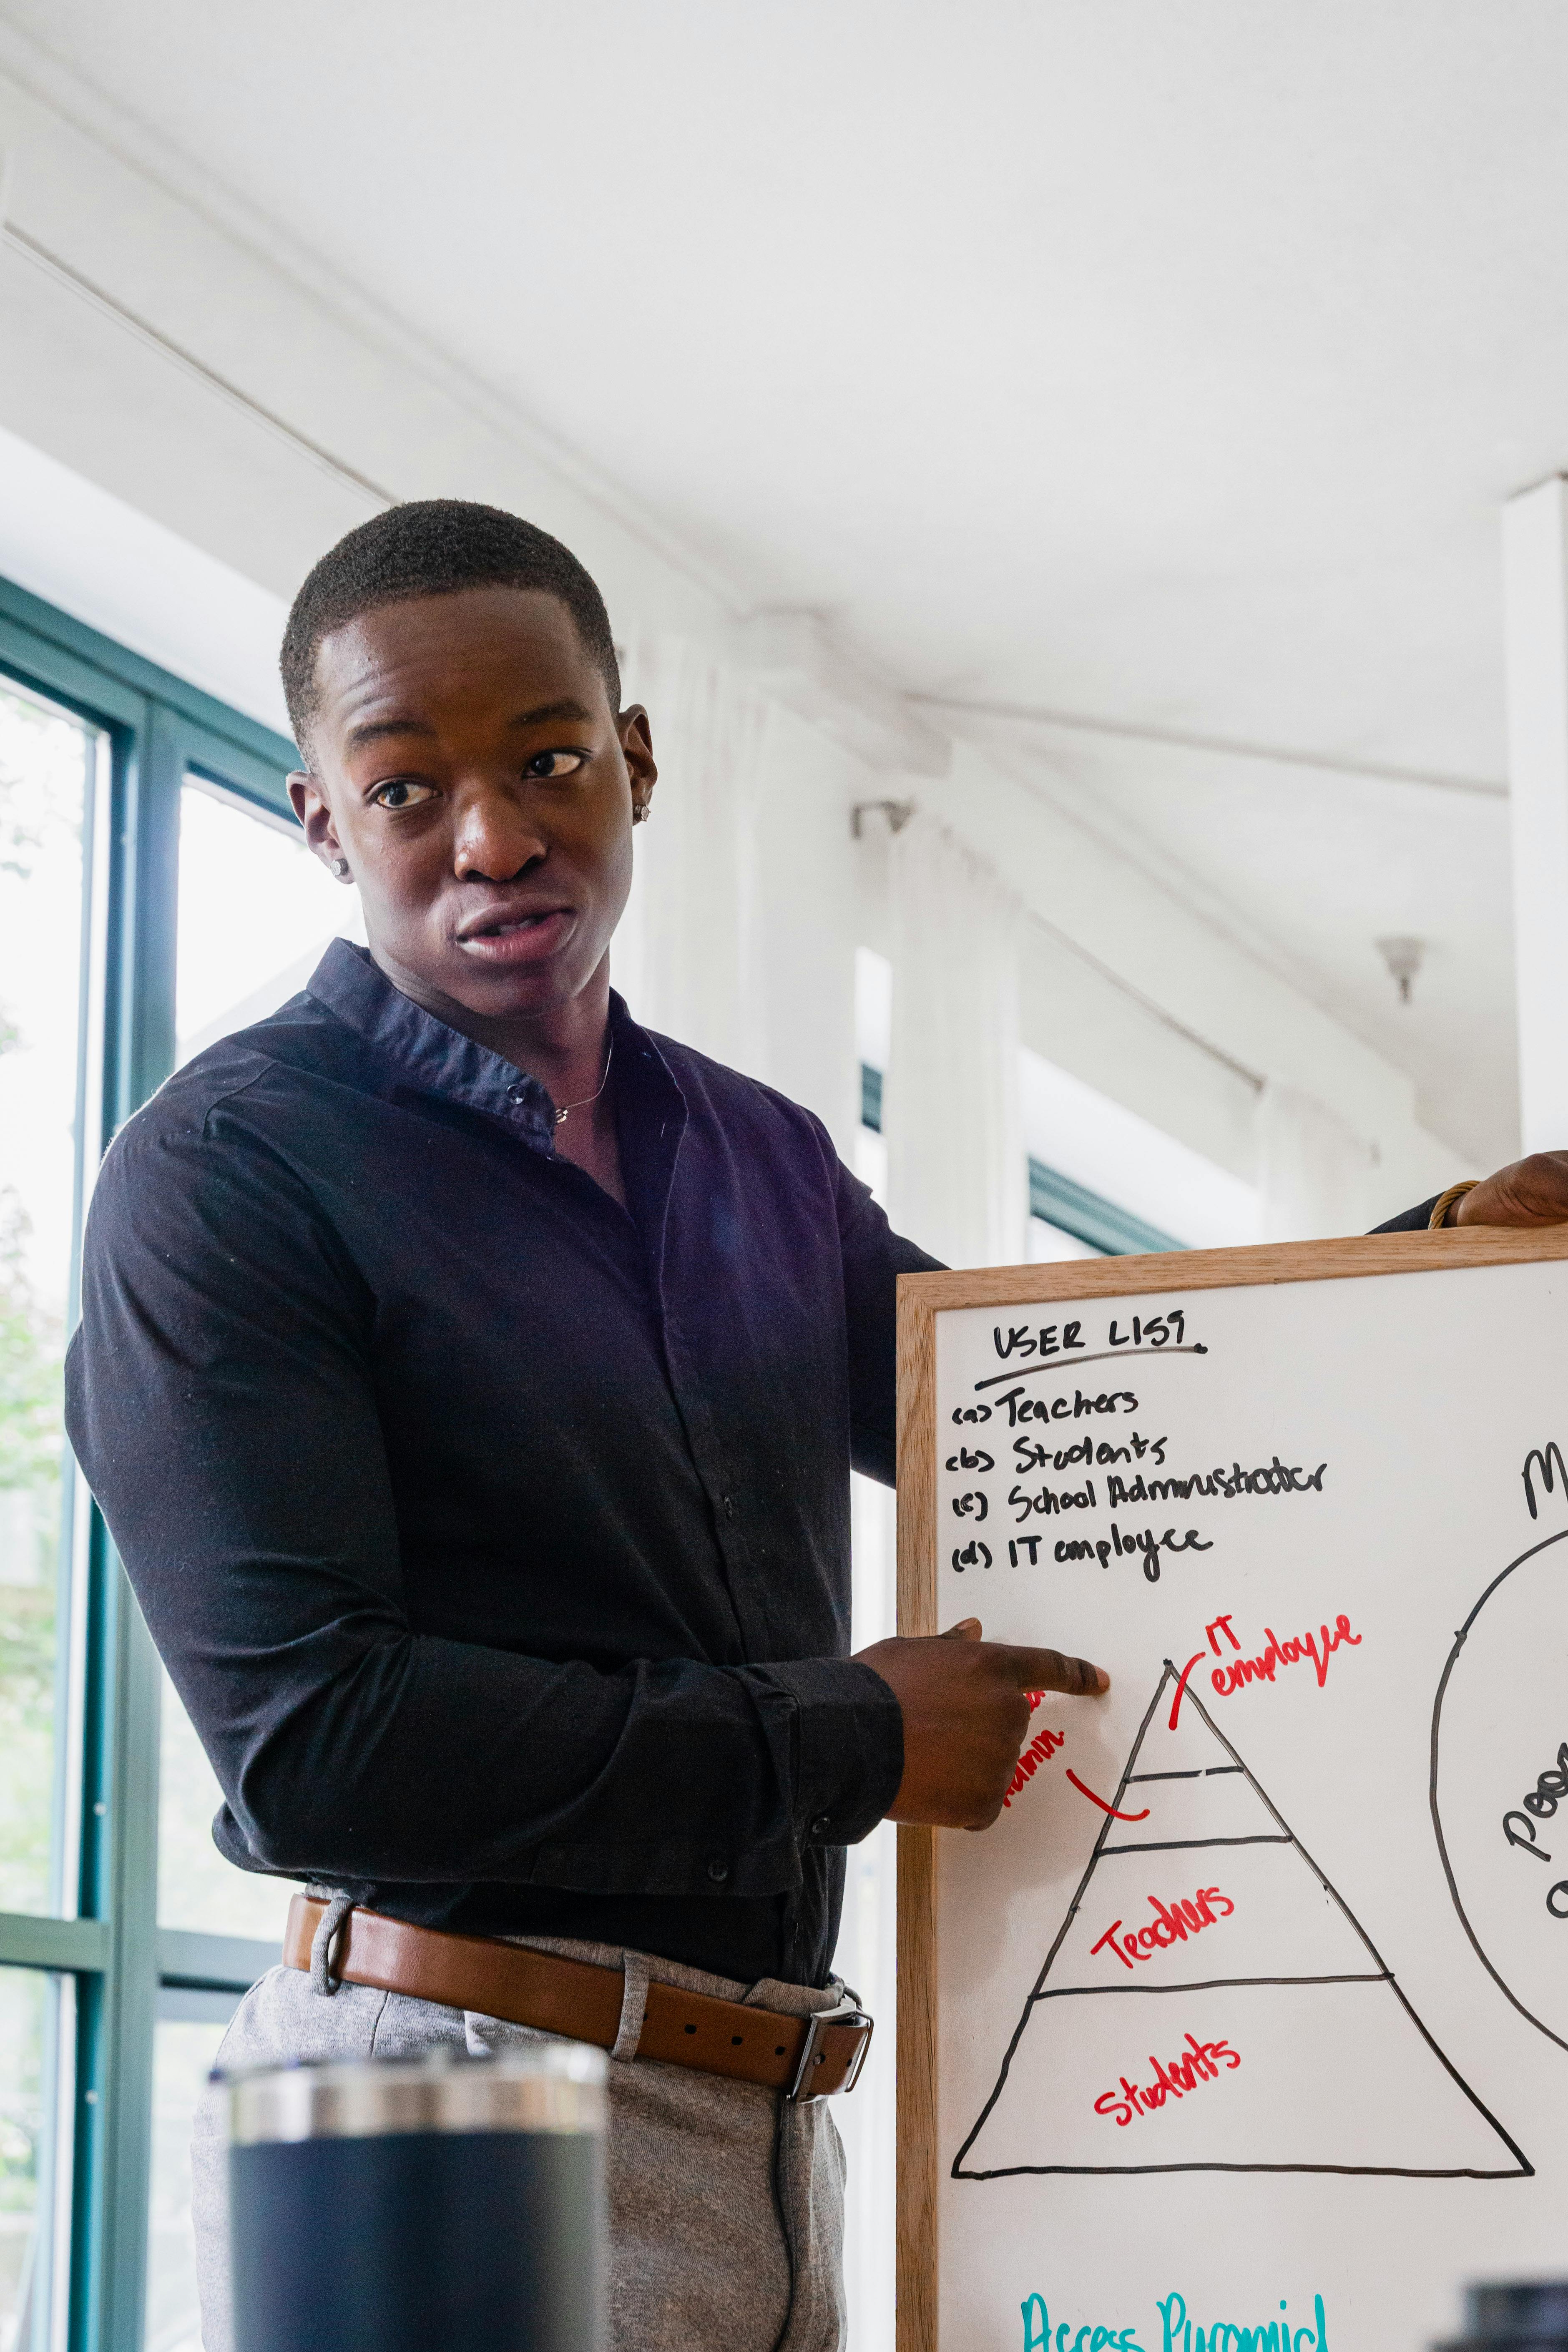 USER LIST
(a) Teachers
(b) Students
(c) School Administrator
(d) IT employee
IT
employee
Admin
Teachers
Students
Access Pyramid
M
Poo